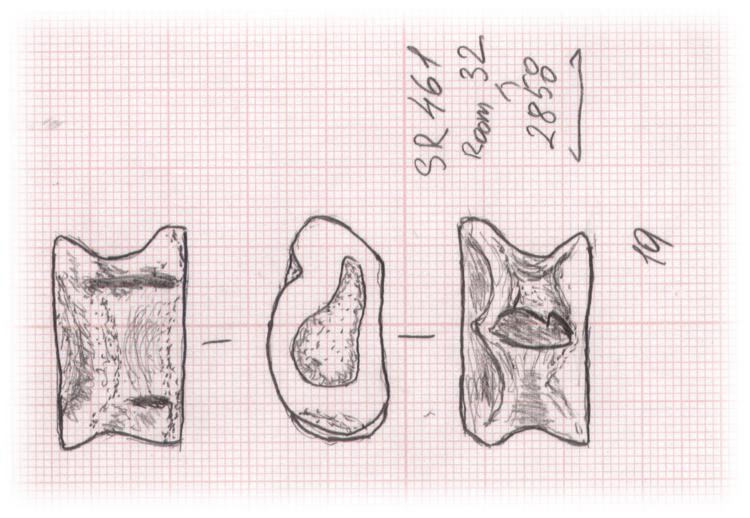 SR 461
Room 32
2850
19